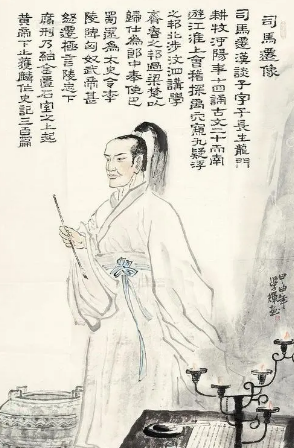 司馬遷像
司馬遷漢談子字子長生龍門
耕牧河陽年十四誦古文二十而南
遊江淮上會稽探禹穴窺九疑浮
之邦北涉汶泗講學
齊魯之邦過梁楚以
歸仕為郎中奉使巴
蜀還為太史令李
陵降匈奴武帝甚
怒遷極言陵忠下
腐刑乃紬金匱石室之上起
黃帝下止獲麟作史記三百篇
甲申年